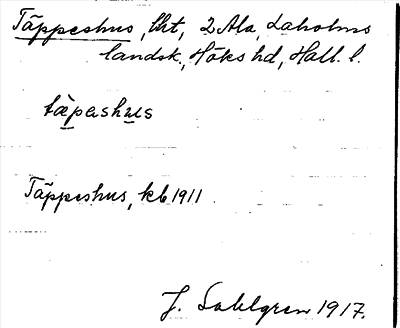 Täppeshus, lht, 2 Ala, Laholms
landsk., Höks hd, Hall. l.
tæ̀pashus
Täppeshus, kb 1911
J. Sahlgren 1917.